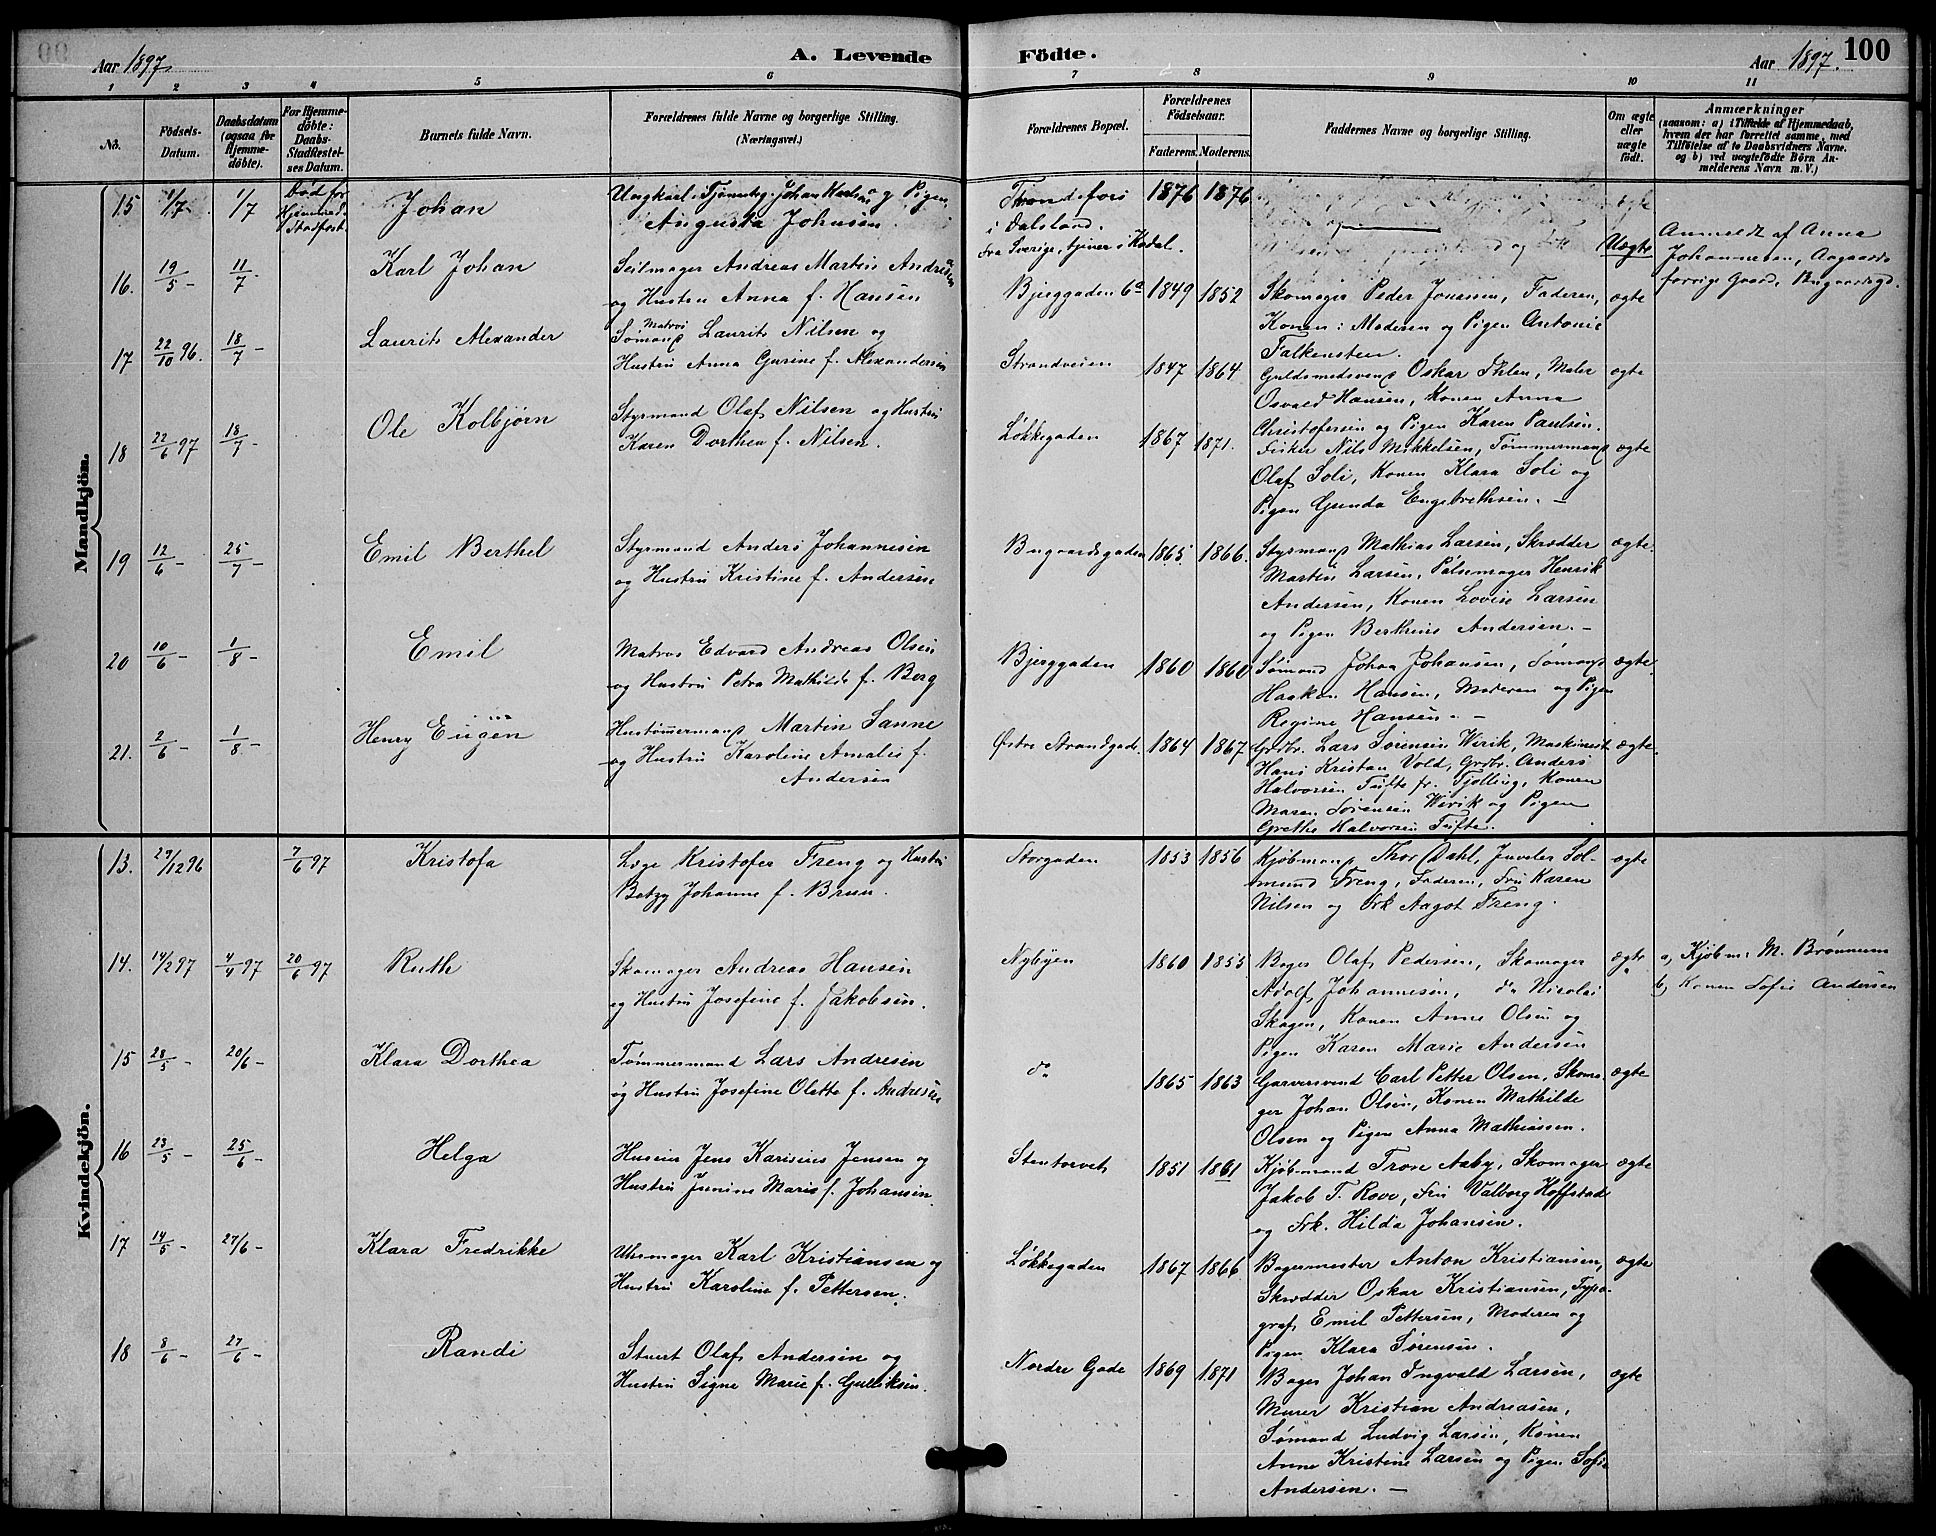 Aar 1897.
A. Levende
Födte.
Aar 1897.
100
1 2 3 4 5 6 7 8 9 10 11
No.
Födsels-Datum.
Daabsdatum (ogsaa for Hjemmedöbte).
For Hjemmedöbte: Daabs-Stadfæstelses Datum.
Barnets fulde Navn.
Forældrenes fulde Navne og borgerlige Stilling. (Næringsvei.)
Forældrenes Bopæl.
Forældrenes Födselsaar.
Faderens. Moderens.
Faddernes Navne og borgerlige Stilling.
Om ægte eller uægte födt.
Anmærkninger
(saasom: a) i Tilfælde af Hjemmedaab, hvem der har forrettet samme, med Tilföielse af to Daabsvidners Navne. og b) ved uægtefödte Börn Anmelderens Navn m. V.)
Mandkjön.
15 1/7 1/7 Død før Hjemmed. Stadfæst.
Johan
Ungkarl, Johan Karlsen og Pigen
Augusta Johnsen.
i Dalsland.
fra Sverige, tjener i Kodal.
1876 1876
Uægte
Anmeldt af Anna
Johannesen, Aagaards
forrige Gaard, Bugaardsgd.
16. 19/5 - 11/7 -
Karl Johan
Seilmager Andreas Martin Andresen
og Hustru Anna f. Hansen
Bjerggaden 6a 1849 1852
Skomager Peder Jonassen, Faderen,
Konen: Moderen og Pigen Antonie
Falkensten.
ægte
17 22/10 96. 18/7 -
Laurits Alexander
Matros
Sømand Laurits Nilsen og
Hustru Anna Gurine f. Alexandersen
Strandveien 1847 1864
Guldsmedsvend Oskar Ihlen, Maler
Osvald Hansen, Konen Anna
Christofersen og Pigen Karen Paulsen.
ægte
18 22/6 97 18/7 -
Ole Kolbjørn
Styrmand Olaf Nilsen og Hustru
Karen Dorthea f. Nilsen.
Løkkegaden 1867 1871.
Fisker Nils Mikkelsen, Tømmermand
Olaf Soli, Konen Klara Soli og
Pigen Gunda Engebrethsen. -
ægte
19 12/6 - 25/7 -
Emil Berthel
Styrmand Anders Johannesen
og Hustru Kristine f. Andersen
Bugaardsgaden 1865 1866.
Styrmand Mathias Larsen, Skrædder
Martin Larsen, Pølsemager Henrik
Andersen, Konen Lovise Larsen
og Pigen Berthine Andersen. -
ægte.
20 10/6 - 1/8 -
Emil
Matros Edvard Andreas Olsen
og Hustru Petra Mathilde f. Berg
Bjerggaden 1860 1860
Sømand Johan Johansen, Sømand
Haakon Hansen, Moderen og Pigen
Regine Hansen. -
ægte.
21. 2/6 - 1/8 -
Henry Eugen
Hustømmermand Martin Sanne
og Hustru Karoline Amalie f.
Andersen
Østre Strandgade. 1864 1867
Grdbr. Lars Sørensen Wirik, Maskinist
Hans Kristian Vold, Grdbr. Anders
Halvorsen Tufte fr. Tjølling, Konen
Maren Sørensen Wirik og Pigen
Grethe Halvorsen Tufte.
ægte.
Kvindekjön.
13. 29/12 96 7/6 97
Kristofa
Læge Kristofer Freng og Hustru
Betzy Johanne f. Bruun.
Storgaden 1853 1856
Kjøbmand Thor Dahl, Juveler Sol-
mund Freng, Faderen, Fru Karen
Nilsen og Frk Aagot Freng.
ægte
14. 14/2 97 4/4 97 20/6 97
Ruth
Skomager Andreas Hansen
og Hustru Josefine f. Jakobsen.
Nybyen 1860 1855
Bager Olaf Pedersen, Skomager
Adolf Johannesen, do Nicolai
Skogen, Konen Anne Olsen og
Pigen Karen Marie Andersen
ægte
a, Kjøbm: M. Brønnum
b, Konen Sofie Andersen
15 28/5 - 20/6 -
Klara Dorthea
Tømmermand Lars Andresen
og Hustru Josefine Olette f. Andresen
do 1865 1863
Garversvend Carl Petter Olsen, Skoma-
ger Johan Olsen, Konen Mathilde
Olsen og Pigen Anna Mathiassen.
ægte
16 23/5 - 25/6 -
Helga
Huseier Jens Karinius Jensen og
Hustru Junine Marie f. Johansen.
Stentorvet 1851 1861
Kjøbmand Trone Aaby, Skomager
Jakob T. Rove, Fru Valborg Hoffstad
og Frk. Hilda Johansen.
ægte
17 14/5 - 27/6 -
Klara Fredrikke
Uhrmager Karl Kristiansen og
Hustru Karoline f. Pettersen.
Løkkegaden 1867 1866
Bagermester Anton Kristiansen,
Skrædder Oskar Kristiansen, Typo-
graf Emil Pettersen, Moderen og
Pigen Klara Sørensen.
ægte
18 8/6 - 27/6 -
Randi
Stuert Olaf Andersen og
Hustru Signe Marie f. Gulliksen.
Nordre Gade 1869 1871
Bager Johan Ingvald Larsen,
Murer Kristian Andreasen,
Sømand Ludvig Larsen, Konen
Anne Kristine Larsen og Pigen Sofie
Andersen. -
ægte